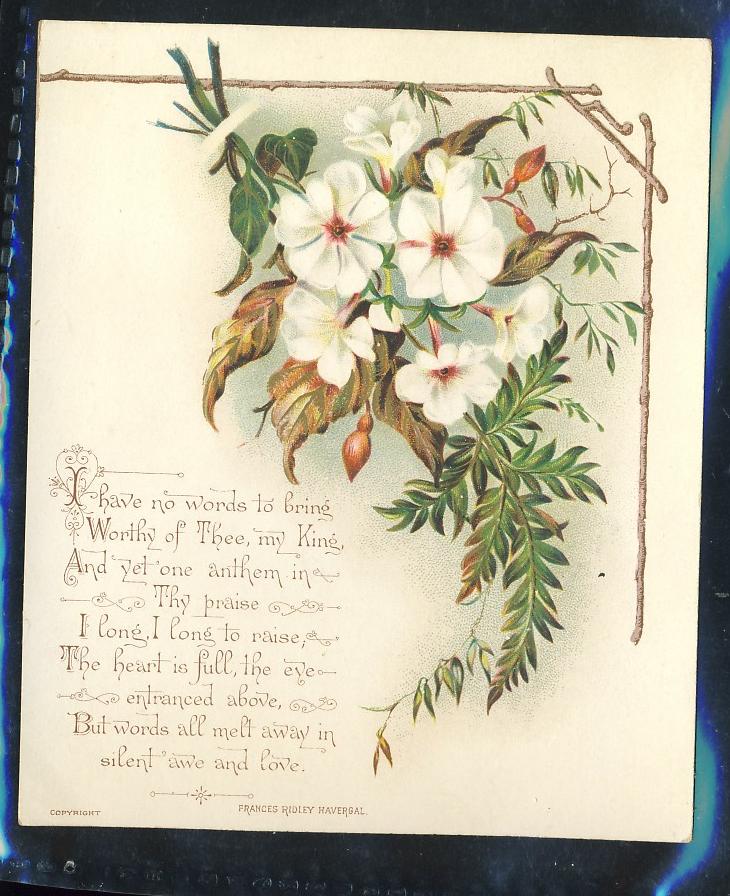 I have no words to bring
Worthy of Thee, my King,
And yet one anthem in
Thy praise
I long, I long to raise;
The heart is full, the eye
entranced above,
But words all melt away in
silent awe and love.
COPYRIGHT
FRANCES RIDLEY HAVERGAL.